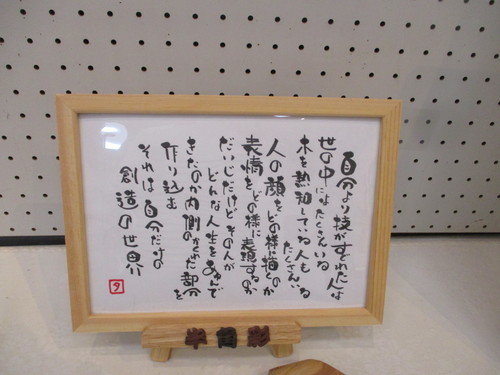 自分より技がすぐれた人は
世の中にはたくさんいる
木を熟知している人も
たくさんいる
人の顔をどの様に描くのか
表情をどの様に表現するのか
だいじだけど その人が
どんな人生をあゆんで
きたのか内側のかくれた部分を
作り込む
それは 自分だけの
創造の世界